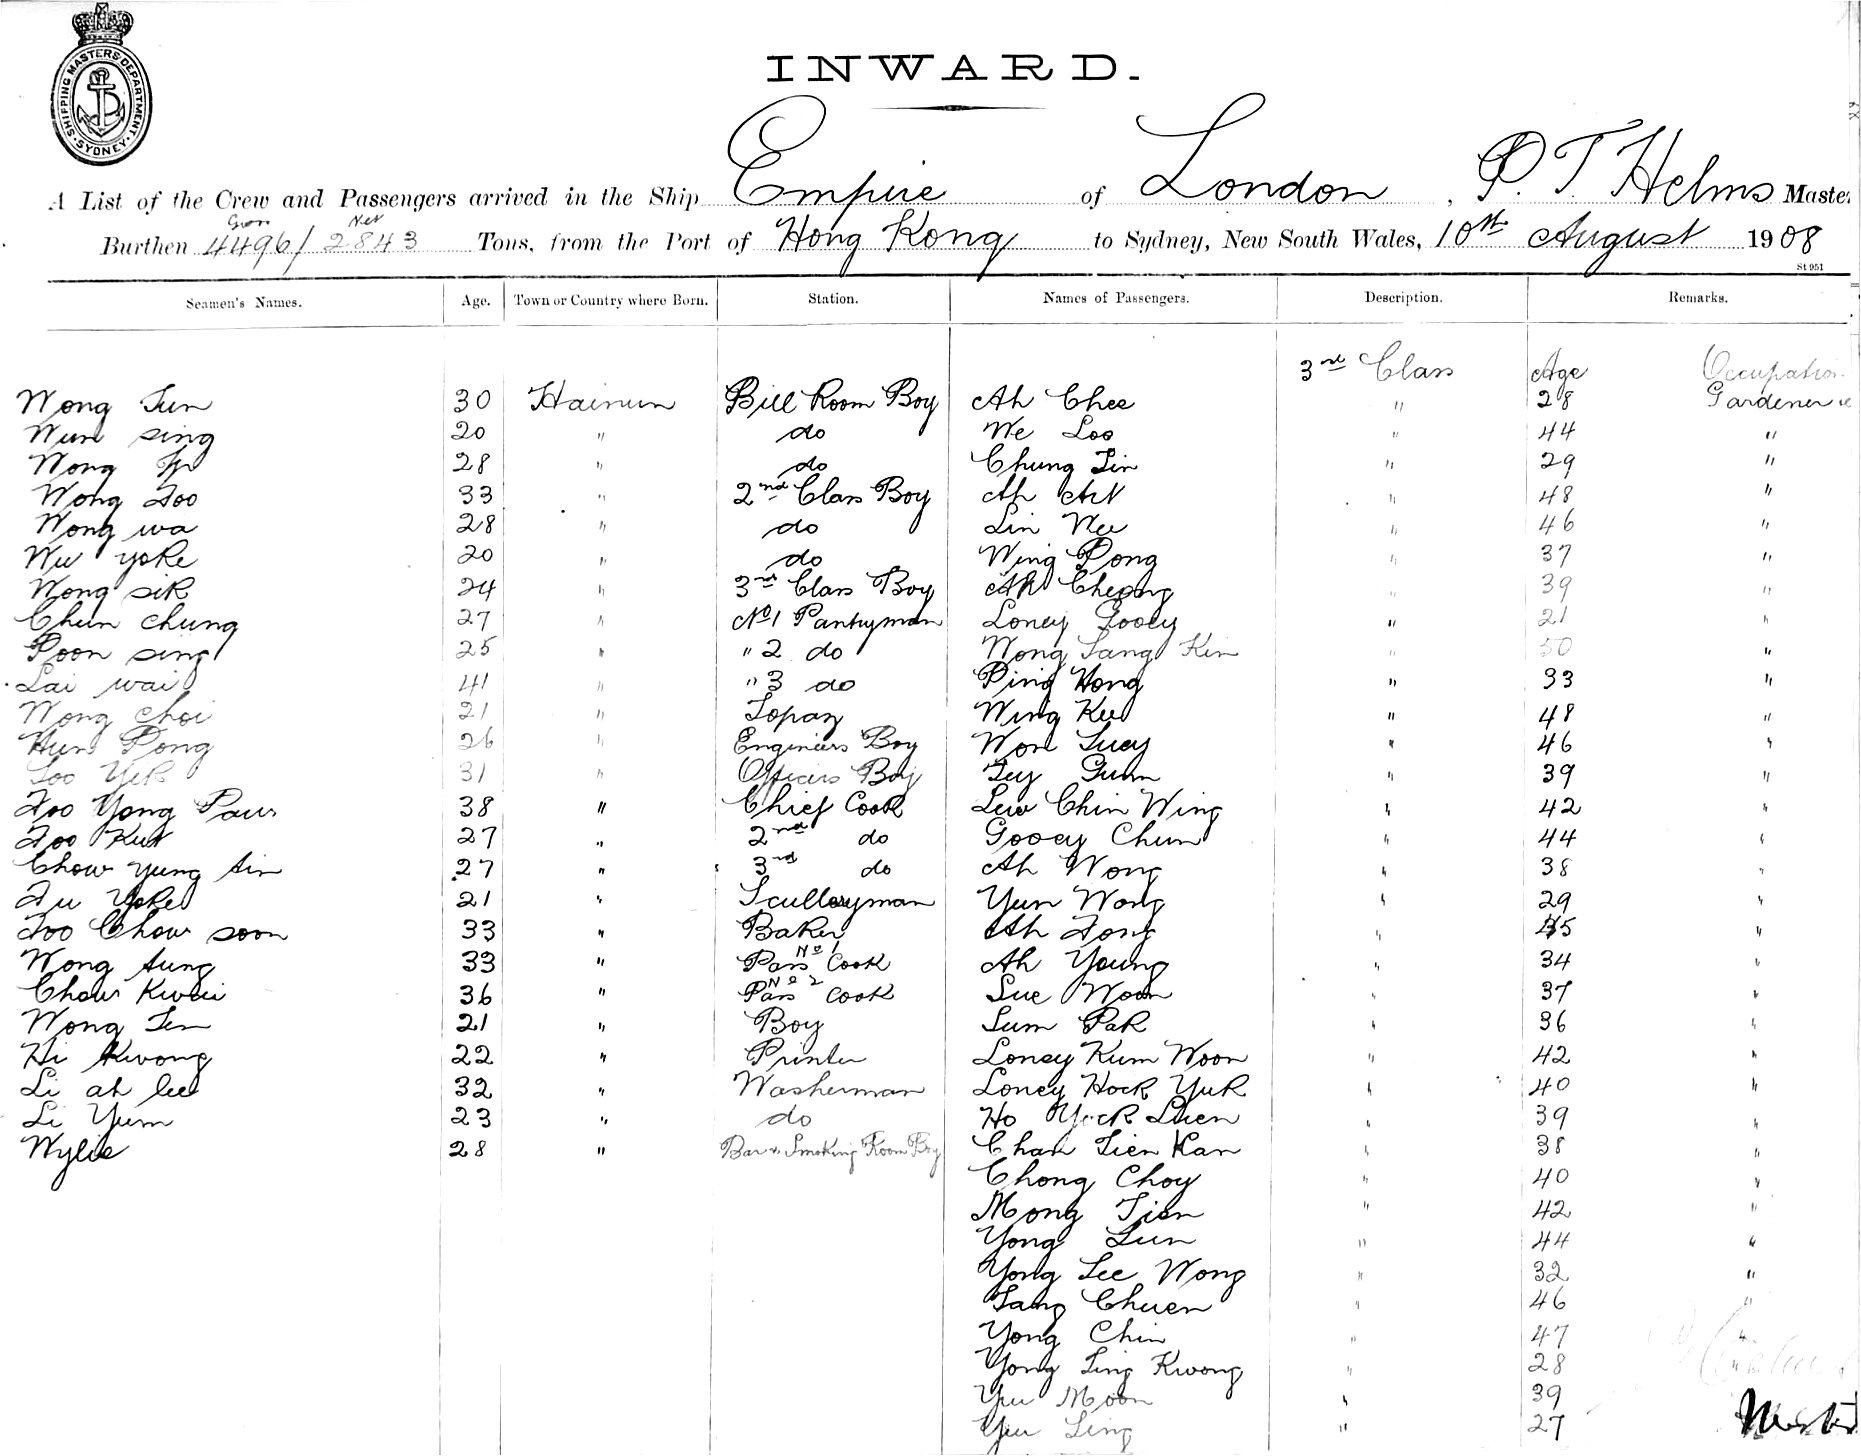 SHIPPING MASTERS DEPARTMENT. SYDNEY.
INWARD.
A List of the Crew and Passengers arrived in the Ship Empire of London, P. T. Helms Master
Gross Net
Burthen 4496/2843 Tons, from the Port of Hong Kong to Sydney, New South Wales, 10th August 1908
St 951
Seamen's Names. Age. Town or Country where Born. Station. Names of Passengers. Description. Remarks.
3rd Class Age Occupation
Wong Sun 30 Hainun Bill Room Boy Ah Chee " 28 Gardener
Wun sing 20 " do We Loo " 44 "
Wong 28 " do Chung Lin " 29 "
Wong Foo 33 " 2nd Class Boy Ah " 48 "
Wong wa 28 " do Lin Wee " 46 "
Wu yoke 20 " do Wing Pong " 37 "
Wong sik 24 " 3rd Class Boy Ah Cheong " 39 "
Chun chung 27 " No 1 Pantryman Loney Gooey " 21 "
Poon sing 25 " " 2 do Wong Sang Kin " 50 "
Lai wai 41 " " 3 do Ping Hong " 33 "
Wong choi 21 " Topaz Wing Kee " 48 "
Hun Pong 26 " Engineers Boy Won Suey " 46 "
Foo Yek 31 " Officers Boy Fey Gum " 39 "
Foo Yong Paw 38 " Chief Cook Lew Chin Wing " 42 "
Foo Kut 27 " 2nd do Gooey Chun " 44 "
Chow yung sin 27 " 3rd do Ah Wong " 38 "
Fu Yoke 21 " Sculleryman Yun Wong " 29 "
Foo Chow soon 33 " Baker Ah Fong " 45 "
Wong sung 33 " Pass No 1 Cook Ah Young " 34 "
Chow Kwai 36 " Pass No 2 Cook Sue Woon " 37 "
Wong Sen 21 " Boy Sum Pak " 36 "
Hi Kwong 22 " Printer Loney Kum Woon " 42 "
Li ah lee 32 " Washerman Loney Hock Yuk " 40 "
Li Yum 23 " do Ho Yock Luen " 39 "
Wylie 28 " Bar & Smoking Room Boy Chan Tien Kan " 38 "
Chong Choy " 40 "
Mong Tien " 42 "
Yong Sun " 44 "
Yong See Wong " 32 "
Sang Chuen " 46 "
Yong Chin " 47 "
Yong Sing Kwong " 28
Yee Moon " 39
Yee Sing " 27